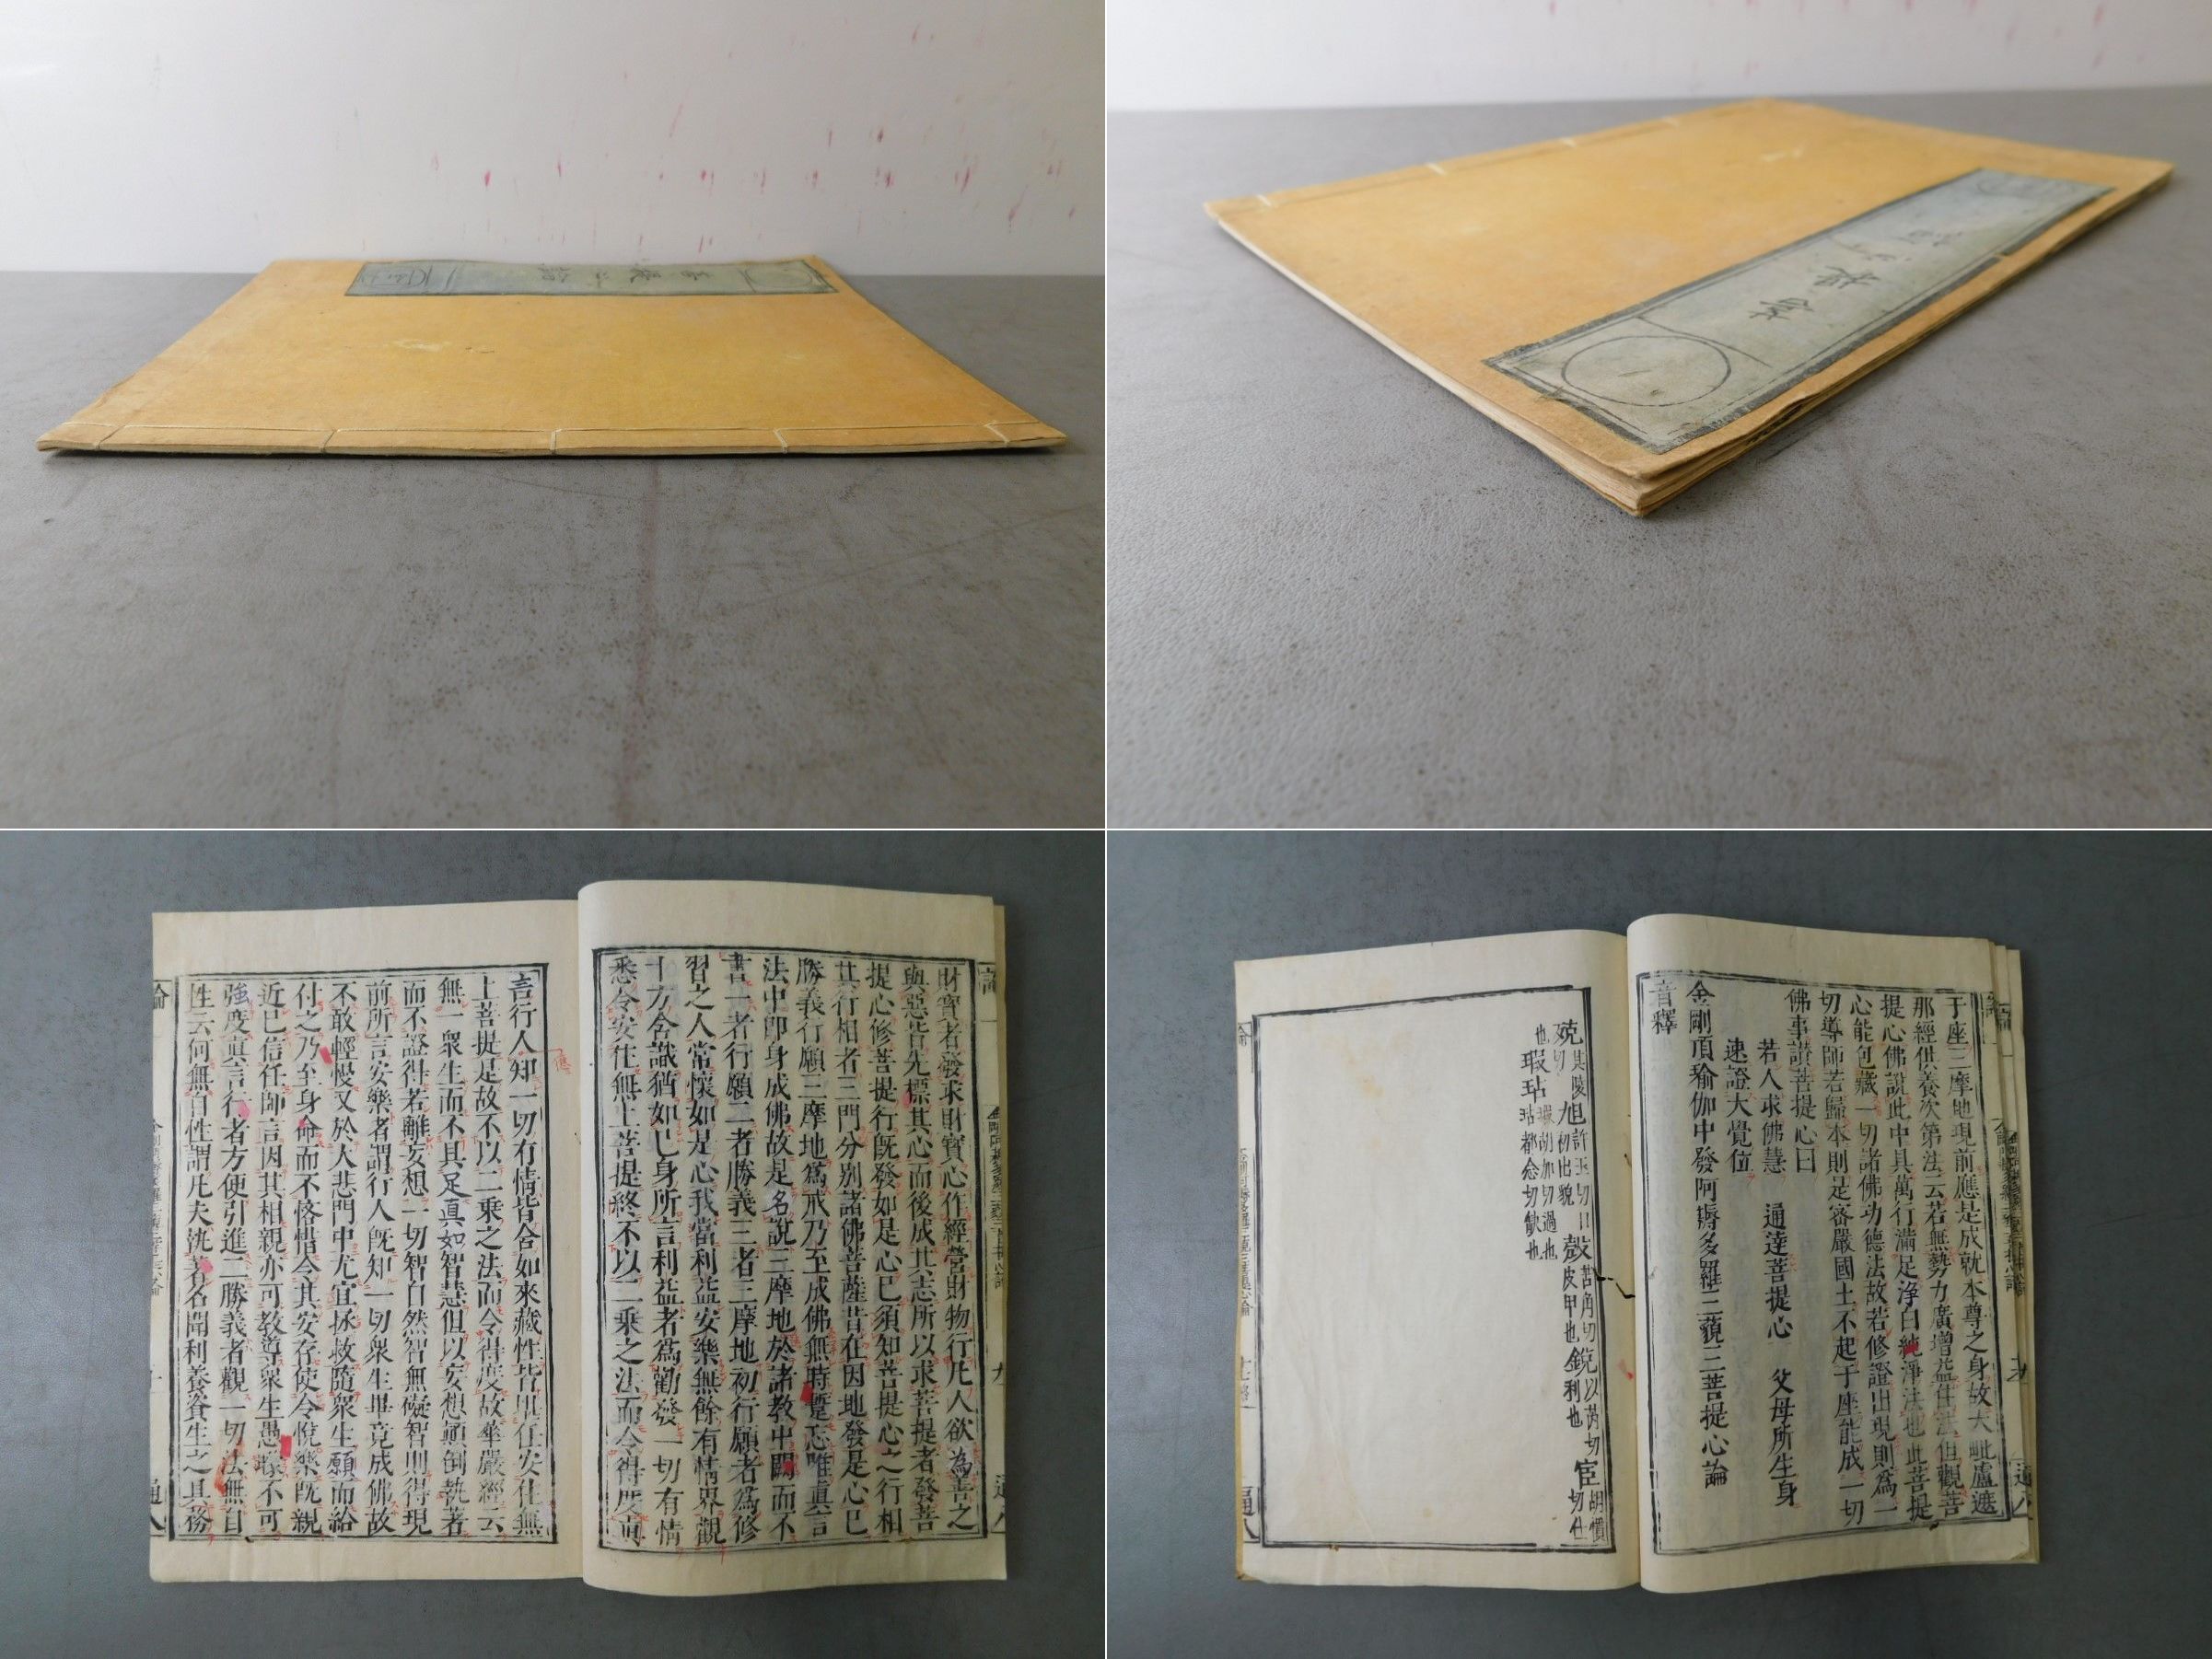 財寶者發求財寶心作經營財物行凡人欲為善之
與惡皆先標其心而後成其志所以求菩提者發菩
提心修菩提行既發如是心已須知菩提心之行相
其行相者三門分別諸佛菩薩昔在因地發是心已
勝義行願三摩地爲戒乃至成佛無時蹔忘唯真言
法中即身成佛故是名說三摩地於諸教中闕而不
書一者行願二者勝義三者三摩地初行願者爲修
習之人常懷如是心我當利益安樂無餘有情界觀
十方含識猶如已身所言利益者爲勸發一切有情
悉令安住無上菩提終不以二乘之法而令得度真
言行人知一切有情皆含如來藏性皆堪任安住無
上菩提是故不以二乘之法而令得度故華嚴經云
無一衆生而不具足真如智慧但以妄想顛倒執著
而不證得若離妄想一切智自然智無礙智則得現
前所言安樂者謂行人既知一切衆生畢竟成佛故
不敢輕慢又於大悲門中尤宜拯救隨衆生願而給
付之乃至身命而不悋惜令其安存使令悅樂既親
近已信任師言因其相親亦可教導衆生愚曚不可
強度真言行者方便引進二勝義者觀一切法無自
性云何無自性謂凡夫執著名聞利養資生之具務
于座三摩地現前應是成就本尊之身故大毗盧遮
那經供養次第法云若無勢力廣增益住法但觀菩
提心佛說此中具萬行滿足淨白純淨法也此菩提
心能包藏一切諸佛功德法故若修證出現則爲一
切導師若歸本則是密嚴國土不起于座能成一切
佛事讚菩提心曰
若人求佛慧　通達菩提心　父母所生身
速證大覺位
金剛頂瑜伽中發阿耨多羅三藐三菩提心論
音釋